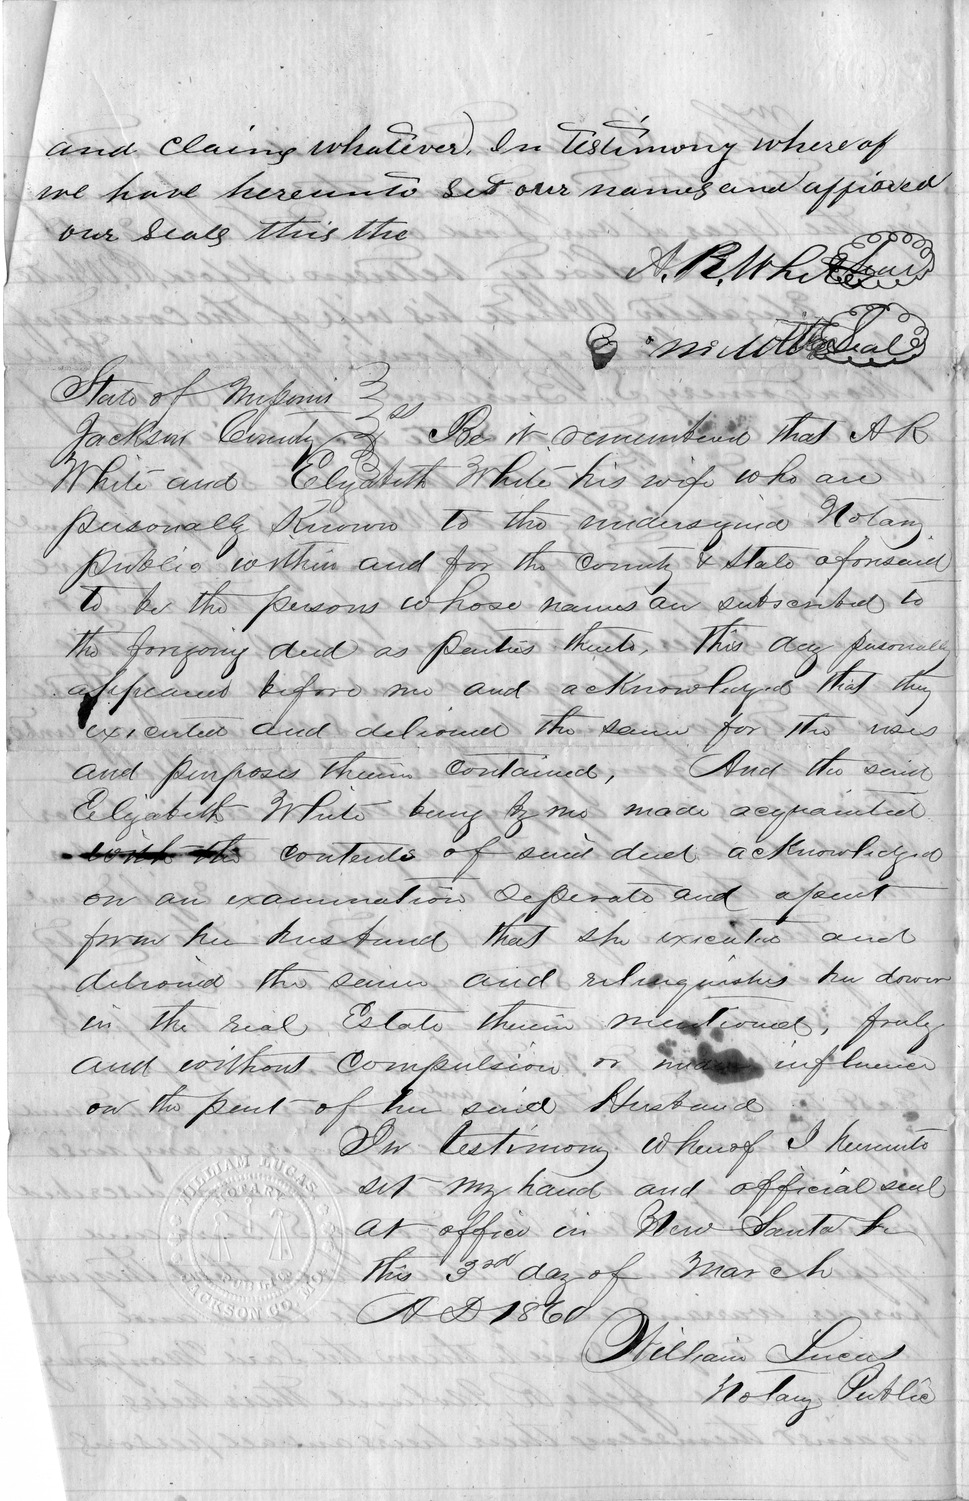 and claims whatever). In testimony where of
we have hereunto Set our names and affixed
our Seals this the
A. R. White Seal
E m White Seal
State of Missouri
Jackson County ss Be it remembered that A R
White and Elizabeth White his wife who are
personally Known to the undersigned Notary
public within and for the county & state aforesaid
to be the persons whose names are subscribed to
the foregoing deed as parties thereto, this day personally
appeared before me and acknowledged that they
executed and delivered the same for the uses
and purposes therein contained, And the said
Elizabeth White being by me made acquainted
with the contents of said deed acknowledged
on an examination seperate and apart
from her husband that she executed and
delivered the same and relinquishes her dower
in the real Estate therein mentioned, freely
and without compulsion or undue influence
on the part of her said Husband
In testimony whereof I hereunto
set my hand and official seal
at office in New Santa Fe
this 3rd day of March
A D 1860
William Lucas
Notary Public
WILLIAM LUCAS
NOTARY
PUBLIC
JACKSON CO. MO.